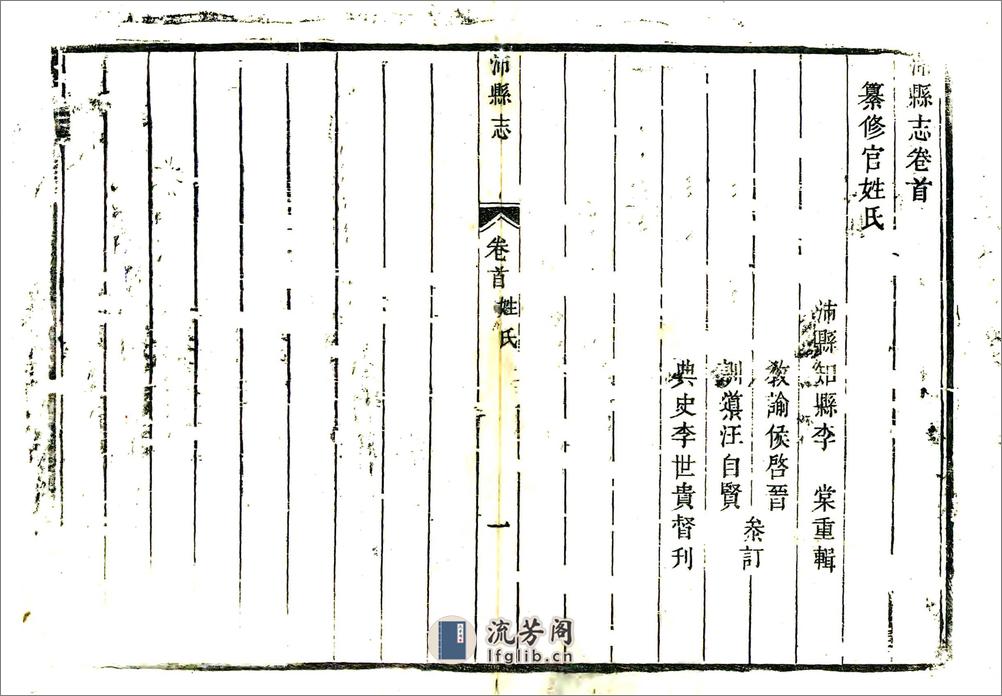 沛縣志卷首
纂修官姓氏
沛縣知縣李　棠重輯
教諭侯啓晉
訓導汪自賢
叅訂
典史李世貴督刊
沛縣志
卷首 姓氏
一
流芳阁
lfglib.cn